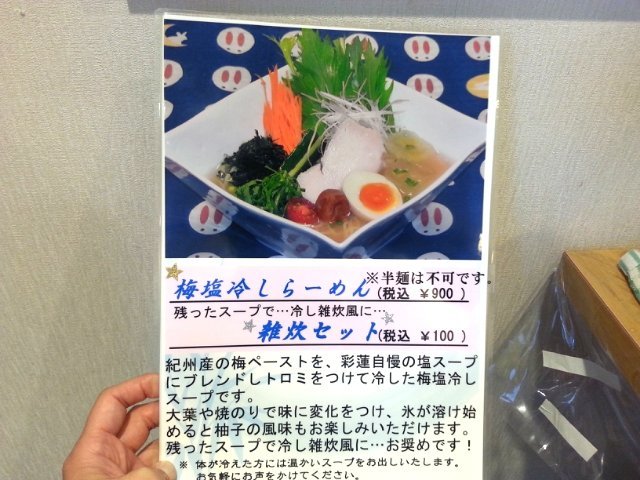 ※半麺は不可です。
梅塩冷しらーめん(税込 ¥900 )
残ったスープで…冷し雑炊風に…
雑炊セット(税込 ¥100 )
紀州産の梅ペーストを、彩蓮自慢の塩スープ
にブレンドしトロミをつけて冷した梅塩冷し
スープです。
大葉や焼のりで味に変化をつけ、氷が溶け始
めると柚子の風味もお楽しみいただけます。
残ったスープで冷し雑炊風に…お奨めです！
※ 体が冷えた方には温かいスープをお出しいたします。
お気軽にお声をかけてください。